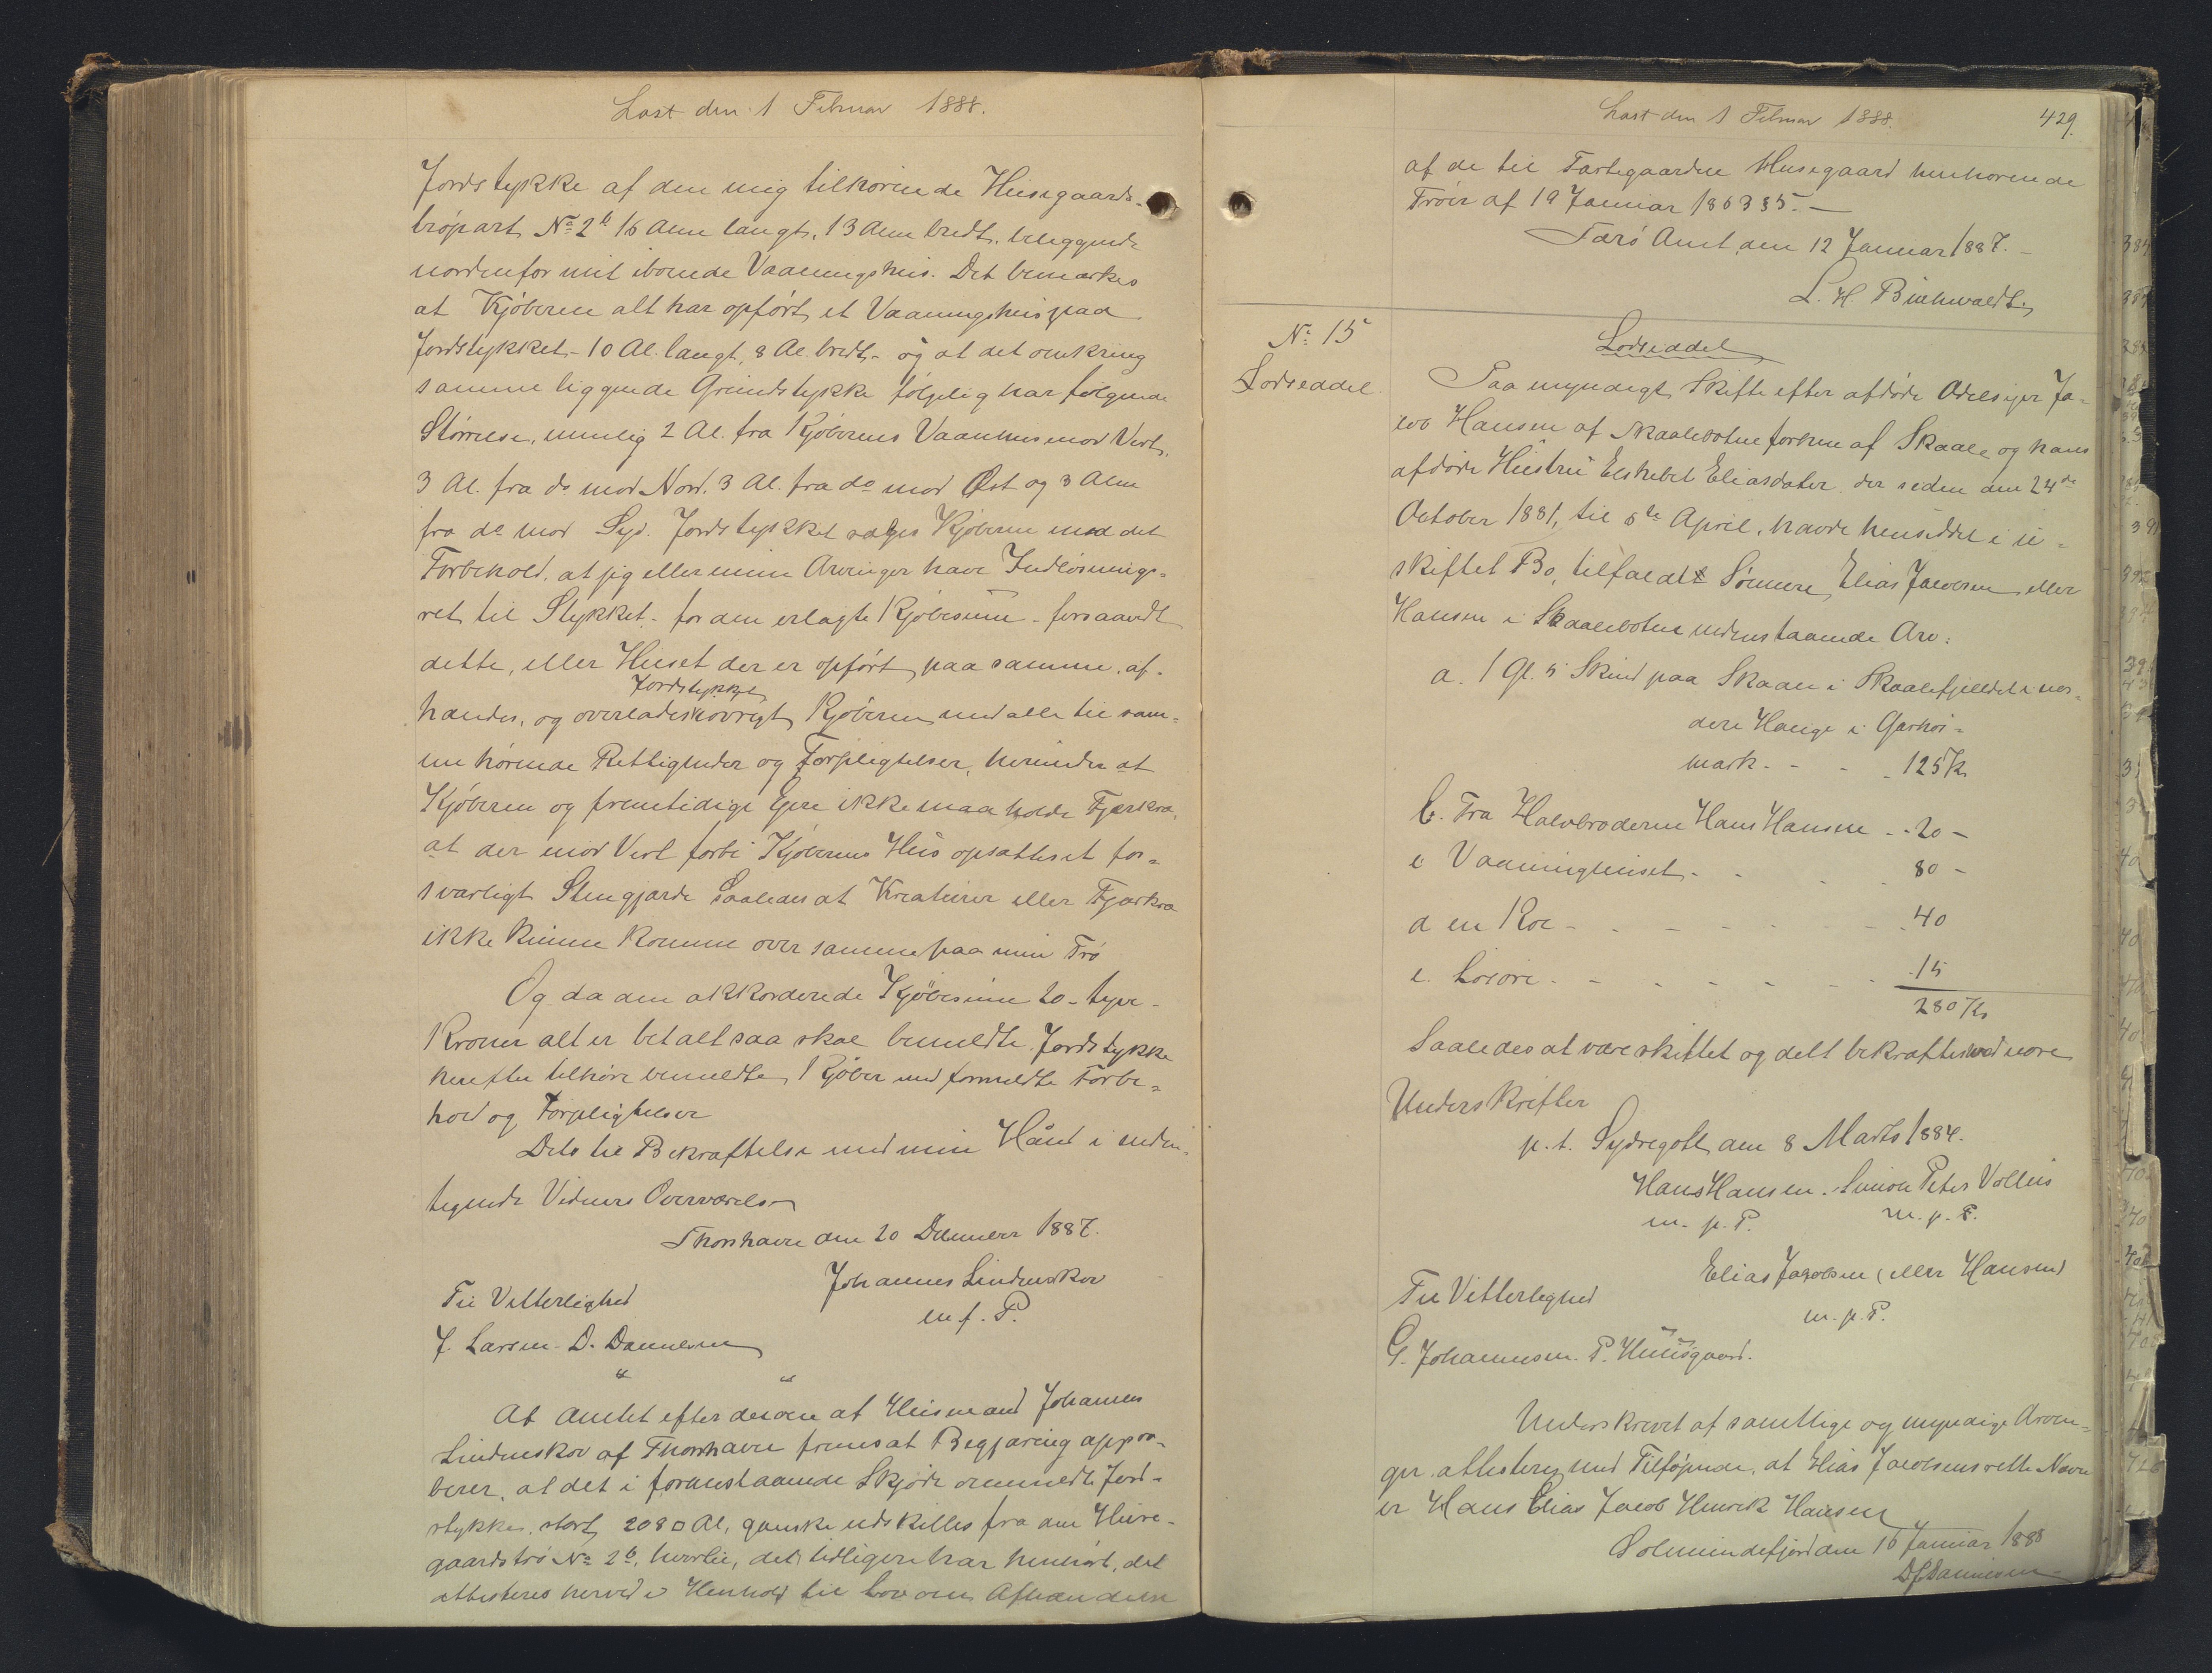 Læst den 1 Februar 1888.
Jordstykke af den mig tilhørende Husegaards-
trøpart No 2b 16 Alen langt, 13 Alen bredt, beliggende
nordenfor mit iboende Vaaningshus. Det bemærkes
at Kjøberen alt har opført et Vaaningshus paa
Jordstykket - 10 Al. langt, 8 Al. bredt - og at det omkring
samme liggende Grundstykke følgelig har følgende
Størrelse, nemlig 2 Al. fra Kjøberens Vaanhus mod Vest,
3 Al. fra do mod Nord. 3 Al. fra do mod Øst og 3 Alen
fra do mod Syd. Jordstykket sælges Kjøberen med det
Forbehold, at jeg eller mine Arvinger have Indløsnings-
ret til Stykket - for den erlagte Kjøbesum - forsaavidt
dette, eller Huset der er opført paa samme, af-
Jordstykket
hændes, og overlades iøvrigt Kjøberen med alle til sam-
me hørende Rettigheder og Forpligtelser, herunder at
Kjøberen og fremtidige Ejere ikke maa holde Fjerkræ,
at der mod Vest forbi Kjøberens Hus opsættes et for-
svarligt Stengjærde saaledes at Kreaturer eller Fjærkræ
ikke kunne komme over samme paa min Trø
Og da den akkorderede Kjøbesum 20 - tyve -
Kroner alt er betalt saa skal bemeldte Jordstykke
herefter tilhøre bemeldte Kjøber med formeldte Forbe-
hold og Forpligtelser
Dets til Bekræftelse med min Haand i under-
tegnede Vidners Overværelse
Thorshavn den 20 December 1887.
Johannes Lindenskov
m. f. P.
Til Vitterlighed
J. Larsen. D. Danielsen
" "
At Amtet efter derom af Husmand Johannes
Lindenskov af Thorshavn fremsat Begjæring appro-
berer, at det i foranstaaende Skjøde ommeldte Jord-
stykke, stort 208 □ Al, ganske udskilles fra den Huse-
gaardstrø No 2b, hvortil, det tidligere har henhørt, det
attesteres herved i Henhold til Lov om Afhændelse
Læst den 1 Februar 1888.
429
af de til Fæstegaarden Husegaard henhørende
Trøer af 19 Januar 1863 § 5. -
Færø Amt, den 12 Januar 1887. -
L. H. Buchwaldt
No 15
Lodseddel
Lodseddel
Paa myndigt Skifte efter afdøde Odelsejer Ja-
cob Hansen af Skaalebotne forhen af Skaale og hans
afdøde Hustru Elsebet Eliasdatter der siden den 24de
October 1881, til 5te April, havde hensiddet i u-
skiftet Bo, tilfaldt Sønnen, Elias Jacobsen eller
Hansen i Skaalebotne nedenstaaende Arv:
a. 1 Gl. 5 Skind paa Skaale i Skaalefjeldet i nor-
dere Hauge i Garhøi-
mark - - - 125 Kr
b. Fra Halvbroderen Hans Hansen - - 20 -
c Vaaninghuset - - - 80 -
d en Koe - - - - - - 40
e. Løsøre - - - - - - 15
280 Kr
Saaledes at være skiftet og delt bekræftes med vore
Underskrifter
p. t. Sydregøte den 8 Marts 1884.
Hans Hansen. Simon Peter Vollus
m. p. P. m. p. P.
Elias Jacobsen (eller Hansen)
m. p. P.
Til Vitterlighed
G. Johannesen. P. Huusgaard.
Underskrevet af samtlige og myndige Arvin-
ger attesterer med Tilføjende, at Elias Jacobsens rette Navn
er Hans Elias Jacob Henrik Hansen
Solmundefjord den 16 Januar 1888
D J Danielsen